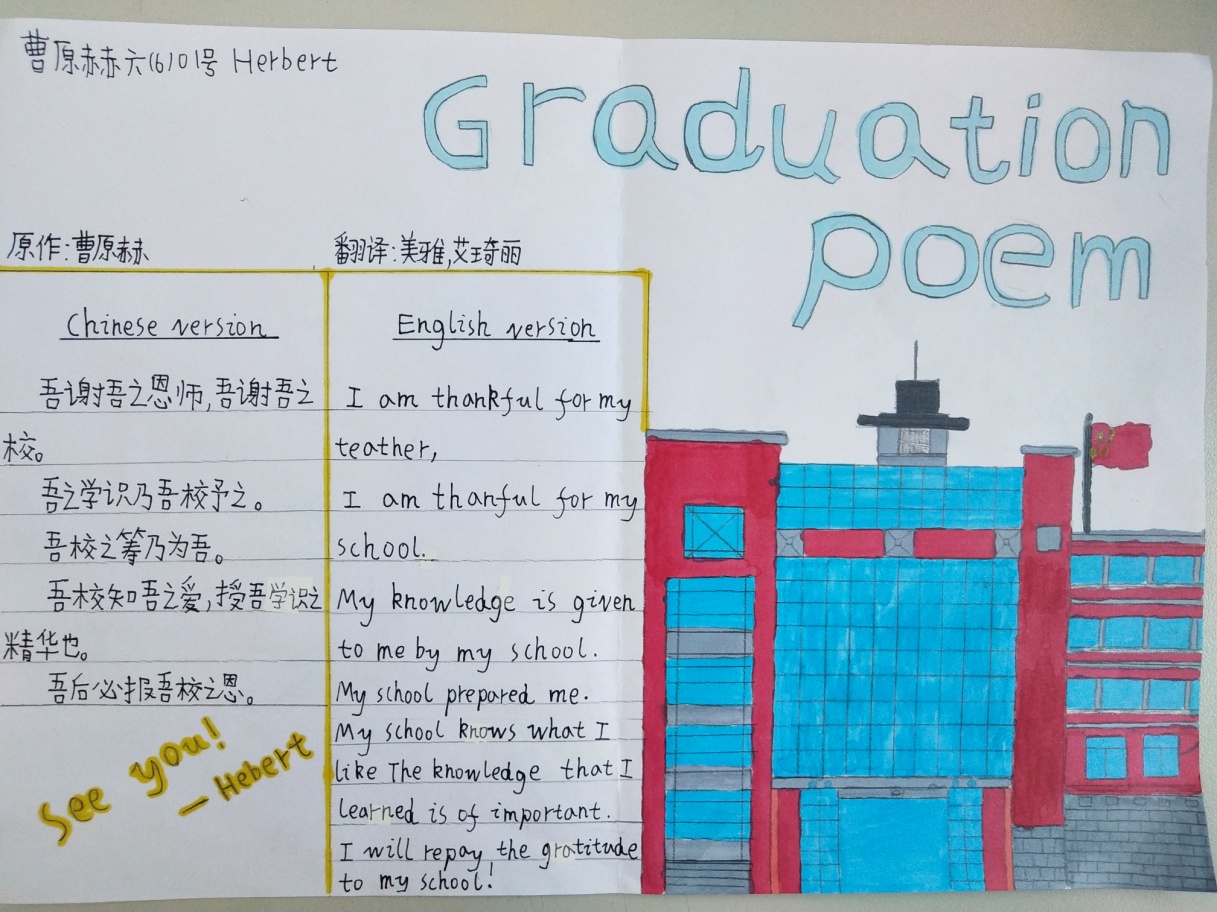 曹原赫六(6)01号 Herbert
Graduation
poem
原作:曹原赫
翻译:美雅,艾琦丽
Chinese version
吾谢吾之恩师,吾谢吾之
校。
吾之学识乃吾校予之。
吾校之筹乃为吾。
吾校知吾之爱,授吾学识之
精华也。
吾后必报吾校之恩。
See you!
— Hebert
English version
I am thankful for my
teather,
I am thanful for my
school.
My knowledge is given
to me by my school.
My school prepared me.
My school knows what I
like The knowledge that I
learned is of important.
I will repay the gratitude
to my school!